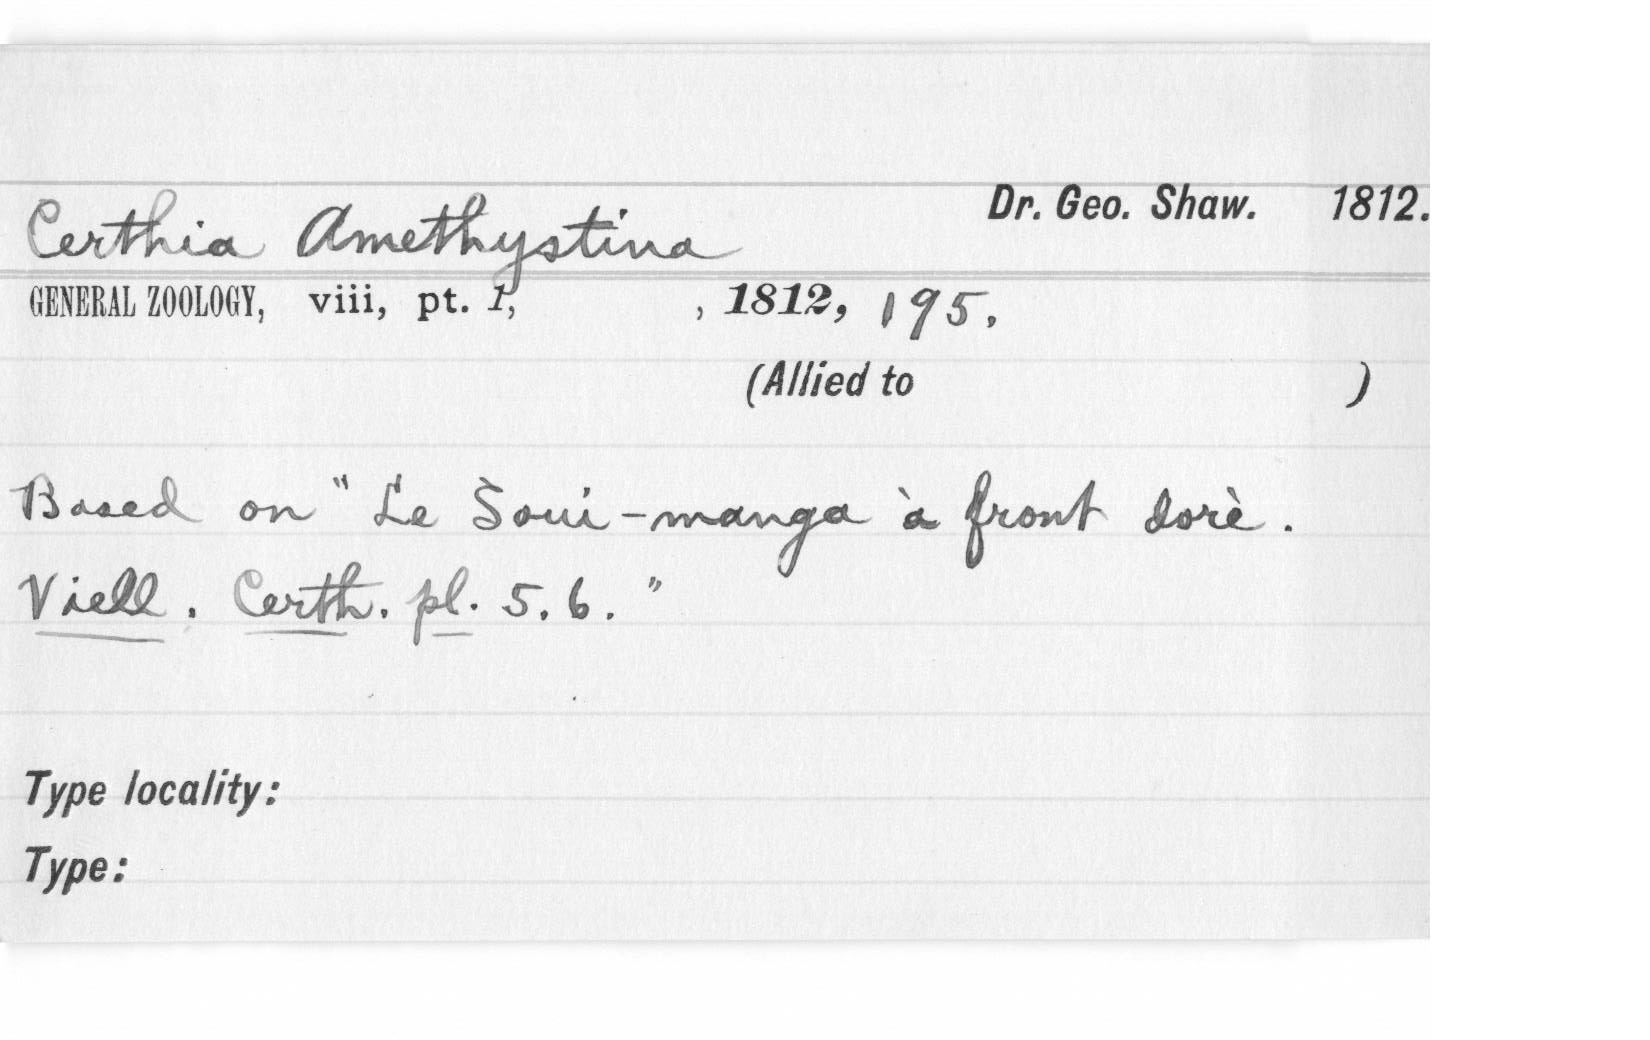 Certhia Amethystina Dr. Geo. Shaw. 1812.
GENERAL ZOOLOGY, viii, pt. 1, , 1812, 195.
(Allied to )
Based on "Le Soui-manga à front dorè.
Viell. Certh. pl. 5. 6."
Type locality:
Type: